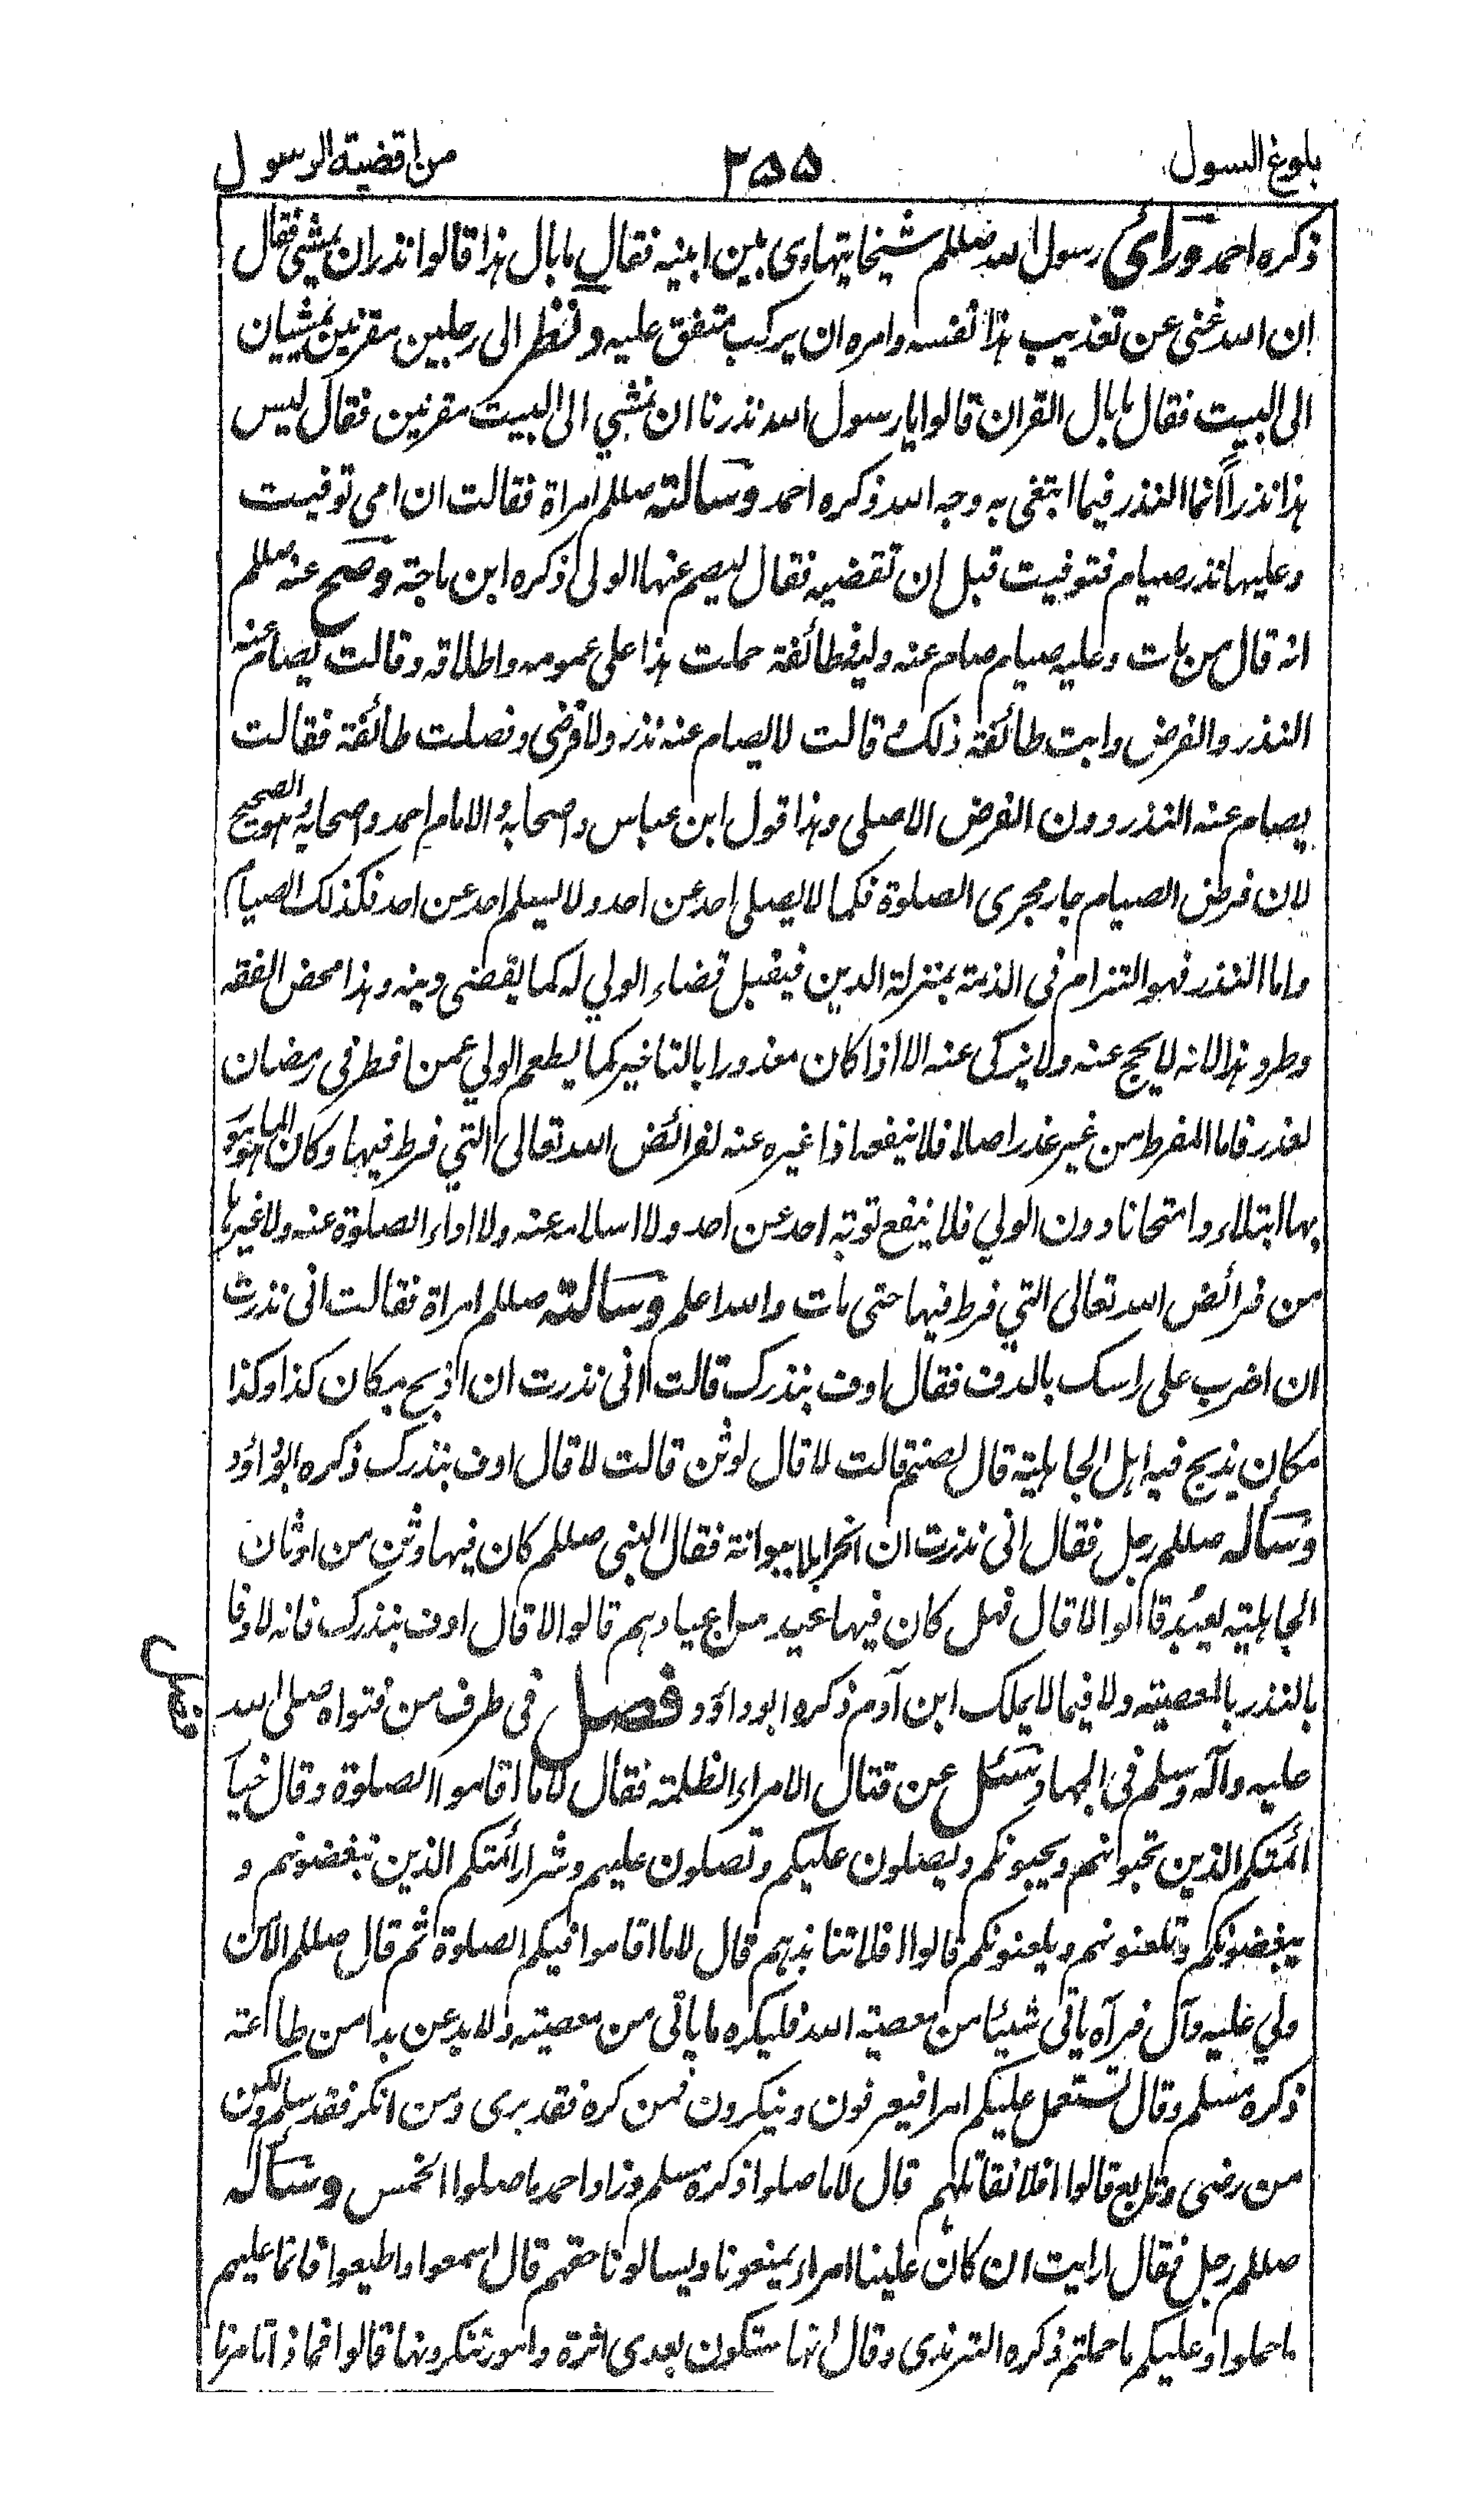 بلوغ السول ٢٥٥ من اقضية الرسول
ذكره احمد ورأى رسول الله صللم شيخا يتهادى بين ابنيه فقال ما بال هذا قالوا نذر ان يمشي فقال
ان الله غنى عن تعذيب هذا نفسه وامره ان يركب متفق عليه ونظر الى رجلين مقرنين يمشيان
الى البيت فقال ما بال القران قالوا يا رسول الله نذرنا ان نمشي الى البيت مقرنين فقال ليس
هذا نذراً انما النذر فيما ابتغى به وجه الله ذكره احمد وسالته صللم امراة فقالت ان امى توفيت
وعليها نذر صيام فتوفيت قبل ان تقضيه فقال ليصم عنها الولى ذكره ابن ماجة وصح عنه صللم
انه قال من مات وعليه صيام صام عنه وليه فطائفة حملت هذا على عمومه واطلاقه وقالت يصام عنه
النذر والفرض وابت طائفة ذلك قالت لا يصام عنه نذر ولا فرض وفصلت طائفة فقالت
يصام عنه النذر دون الفرض الاصلى وهذا قول ابن عباس واصحابه والامام احمد واصحابه وهو الصحيح
لان فرض الصيام جار مجرى الصلوة فكما لا يصلى احد عن احد ولا يسلم احد عن احد فكذلك الصيام
واما النذر فهو التزام فى الذمة بمنزلة الدين فيقبل قضاء الولي له كما يقضى دينه وهذا محض الفقه
وطرد هذا لانه لا يحج عنه ولا يزكى عنه الا اذا كان معذورا بالتاخير كما يطعم الولي عمن افطر فى رمضان
لعذر فاما المفرط من غير عذر اصلا فلا ينفعه اداء غيره عنه لفرائض الله تعالى التي فرط فيها وكان المامور
بها ابتلاء وامتحانا دون الولي فلا ينفع توبة احد عن احد ولا اسلامه عنه ولا اداء الصلوة عنه ولا غيرها
من فرائض الله تعالى التي فرط فيها حتى مات والله اعلم وسالته صللم امراة فقالت انى نذرت
ان اضرب على راسك بالدف فقال اوف بنذرك قالت انى نذرت ان اذبح بمكان كذا وكذا
مكان يذبح فيه اهل الجاهلية قال لصنم قالت لا قال لوثن قالت لا قال اوف بنذرك ذكره ابوداؤد
وسأله صللم رجل فقال انى نذرت ان انحر ابلا ببوانة فقال النبى صللم كان فيها وثن من اوثان
الجاهلية يعبد قالوا لا قال فهل كان فيها عيد من اعيادهم قالوا لا قال اوف بنذرك فانه لا وفا
بالنذر بالمعصية ولا فيما لا يملك ابن آدم ذكره ابوداؤد فصل فى طرف من فتواه صلى الله
عليه وآله وسلم فى الجهاد وسئل عن قتال الامراء الظلمة فقال لا ما اقاموا الصلوة وقال خيار
ائمتكم الذين تحبونهم ويحبونكم ويصلون عليكم وتصلون عليهم وشرار ائمتكم الذين تبغضونهم و
يبغضونكم وتلعنونهم ويلعنونكم قالوا افلا ننابذهم قال لا ما اقاموا فيكم الصلوة ثم قال صللم الا من
ولي عليه وآل فرآه ياتى شيئا من معصية الله فليكره ما ياتى من معصيته ولا ينزعن يدا من طاعته
ذكره مسلم وقال تستعمل عليكم امرا فيعرفون وينكرون فمن كره فقد برى ومن انكر فقد سلم ولكن
من رضى وتابع قالوا افلا نقاتلهم قال لا ما صلوا ذكره مسلم وزاد احمد ما صلوا الخمس وسأله
صللم رجل فقال ارايت ان كان علينا امراء يمنعونا ويسالونا حقهم قال اسمعوا واطيعوا فانما عليهم
ما حملوا وعليكم ما حملتم ذكره الترمذى وقال انها ستكون بعدى اثرة وامور تنكرونها قالوا فما ذا تامرنا